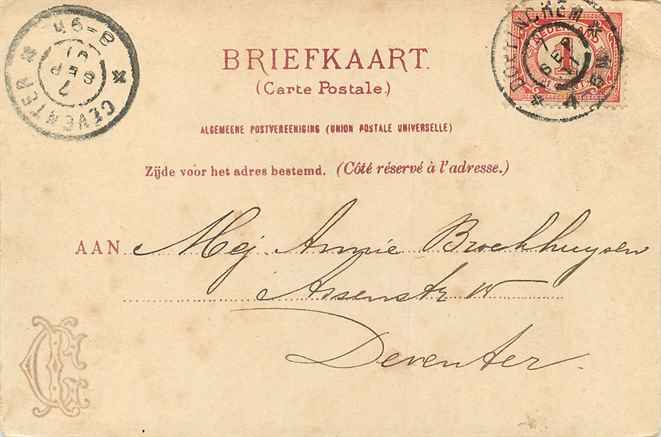 BRIEFKAART.
(Carte Postale.)
ALGEMEENE POSTVEREENIGING (UNION POSTALE UNIVERSELLE)
Zijde voor het adres bestemd. (Côté réservé à l'adresse.)
AAN Mej. Annie Broekhuysen
Assenstr 15
Deventer.
DEVENTER
7 SEP 01
8-9N
DOETINCHEM
SEP
NEDERLAND
1
CENT